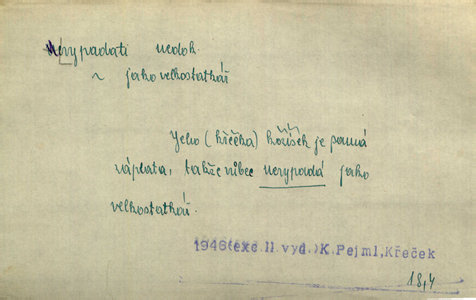 Nevypadati nedok.
~ jako velkostatkář
Jeho (křečka) kožíšek je samá
záplata, takže vůbec nevypadá jako
velkostatkář.
1946(exc.II.vyd.)K.Pejml,Křeček
18,4